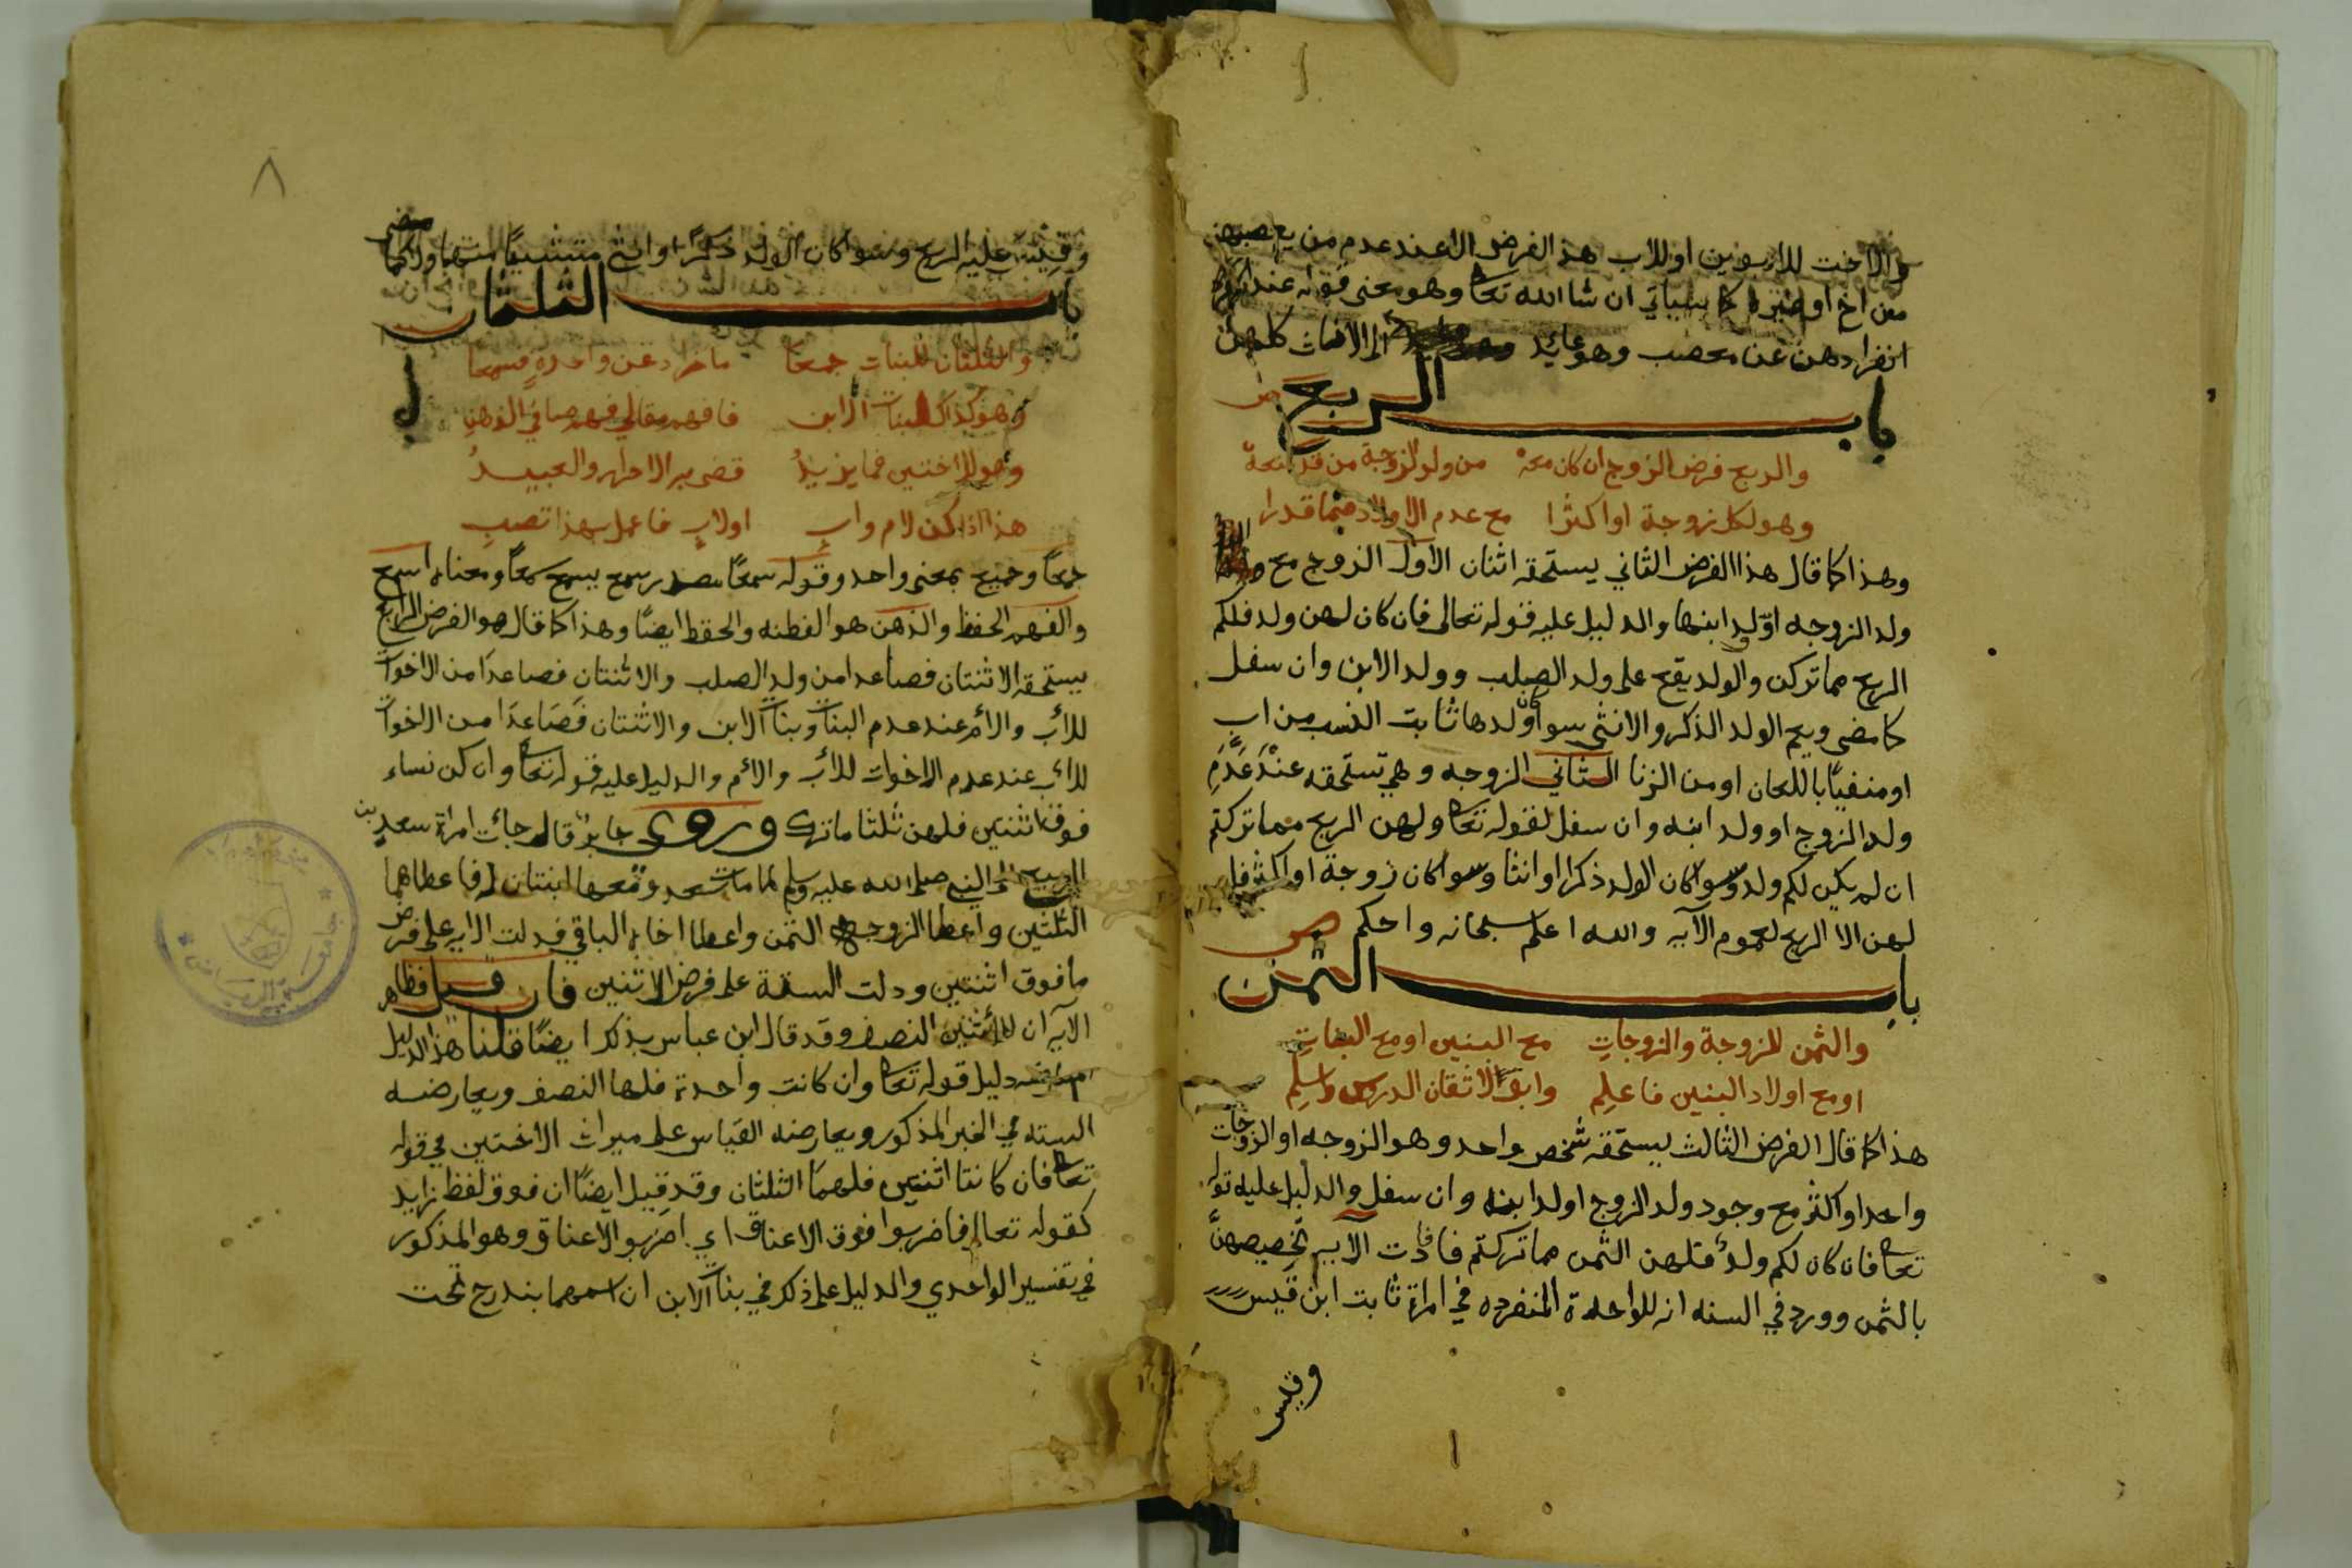 والاخت للابوين او للاب هذا الفرض الا عند عدم من يعصبهن
من اخ او غيره كما سياتي ان شا الله تعا وهو معنى قوله عند
انفرادهن عن معصب وهو عائد الى الاناث كلهن
باب الربع
ص
والربع فرض الزوج ان كان معه من ولد الزوجة من قد منعه
وهو لكل زوجة او اكثرا مع عدم الاولاد فيما قدرا
وهذا كما قال هذا الفرض الثاني يستحقه اثنان الاول الزوج مع
ولد الزوجه او ولد ابنها والدليل عليه قوله تعالى فان كان لهن ولد فلكم
الربع مما تركن والولد يقع على ولد الصلب وولد الابن وان سفل
كما مضى ويعم الولد الذكر والانثى سوا كان ولدها ثابت النسب من اب
او منفيًا باللعان او من الزنا الثاني الزوجه وهي تستحقه عند عدم
ولد الزوج او ولد ابنه وان سفل لقوله تعا ولهن الربع مما تركتم
ان لم يكن لكم ولد وسوا كان الولد ذكرا او انثا وسوا كان زوجة او اكثر فليس
لهن الا الربع لعموم الآيه والله اعلم سبحانه واحكم
ص
باب الثمن
والثمن للزوجة والزوجات مع البنين او مع البنات
او مع اولاد البنين فاعلم وابق لاتقان الدروس واسلم
هذا كما قال الفرض الثالث يستحقه شخص واحد وهو الزوجه او الزوجات
واحدا او اكثر مع وجود ولد الزوج او ولد ابنه وان سفل والدليل عليه قوله
تعا فان كان لكم ولد فلهن الثمن مما تركتم فافادت الآيه تخصيصهن
بالثمن وورد في السنه انه للواحدة المنفرده في امراة ثابت ابن قيس
وقيس
٨
وقيس عليه الربع وسوا كان الولد ذكرًا او انثى
باب الثلثان
والثلثان للبنات جمعا ما زاد عن واحدة فسمعا
وهو كذاك لبنات الابن فافهم مقالي فهم صافي الذهن
وهو للاختين فما يزيد قضى به الاحرار والعبيد
هذا اذا كن لام واب او لاب فاعمل بهذا تصب
جمعًا وجميع بمعنى واحد وقوله سمعًا مصدر سمع يسمع سمعًا ومعناه اسمع
والفهم الحفظ والذهن هو الفطنه والحفظ ايضًا وهذا كما قال هو الفرض الرابع
يستحقه الاثنتان فصاعدا من ولد الصلب والاثنتان فصاعدًا من الاخوات
للاب والام عند عدم البنات وبنات الابن والاثنتان فصاعدًا من الاخوات
للاب عند عدم الاخوات للاب والام والدليل عليه قوله تعا وان كن نساء
فوق اثنتين فلهن ثلثا ما ترك وروى جابر قال جائت امراة سعد بن
الربيع الى النبي صلى الله عليه وسلم لما مات سعد ومعها ابنتان له فاعطاهما
الثلثين واعطا الزوجه الثمن واعطا اخاه الباقي فدلت الايه على فرض
ما فوق اثنتين ودلت السنة على فرض الاثنين فان قيل فظاهر
الآيه ان للاثنتين النصف وقد قال ابن عباس بذلك ايضًا قلنا هذا الدليل
دليل قوله تعا وان كانت واحدة فلها النصف ويعارضه
السنه في الخبر المذكور ويعارضه القياس على ميراث الاختين في قوله
تعا فان كانتا اثنتين فلهما الثلثان وقد قيل ايضًا ان فوق لفظ زايد
كقوله تعالى فاضربوا فوق الاعناق اي اضربوا الاعناق وهو المذكور
في تفسير الواحدي والدليل على ذكر في بنات الابن ان اسمهما يندرج تحت